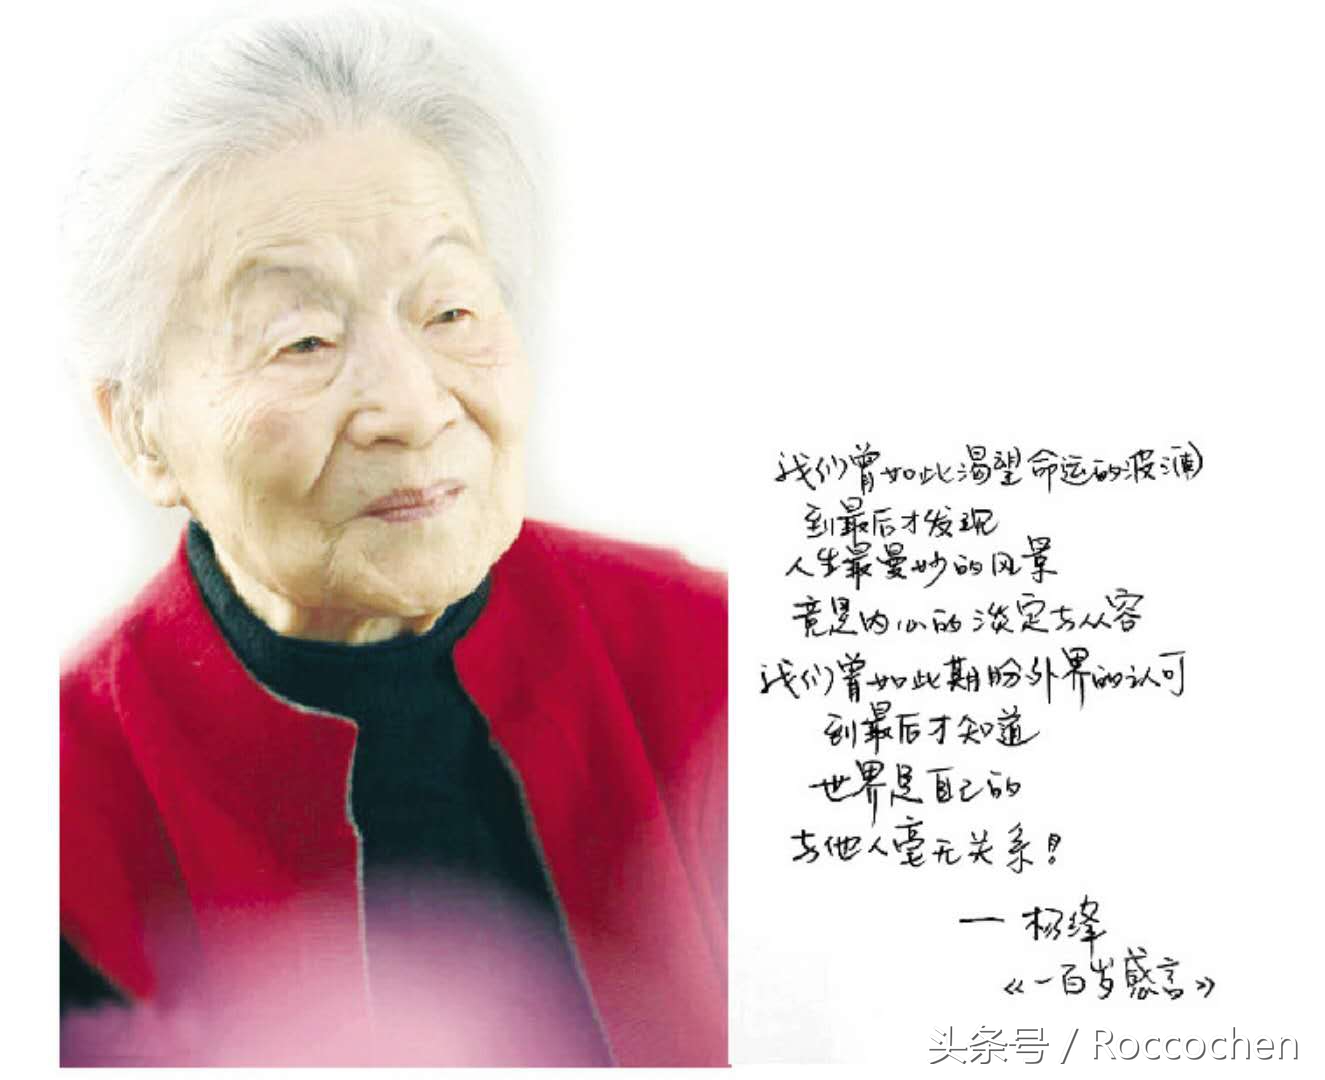 我们曾如此渴望命运的波澜
到最后才发现
人生最曼妙的风景
竟是内心的淡定与从容
我们曾如此期盼外界的认可
到最后才知道
世界是自己的
与他人毫无关系！
— 杨绛
《一百岁感言》
头条号 / Roccochen